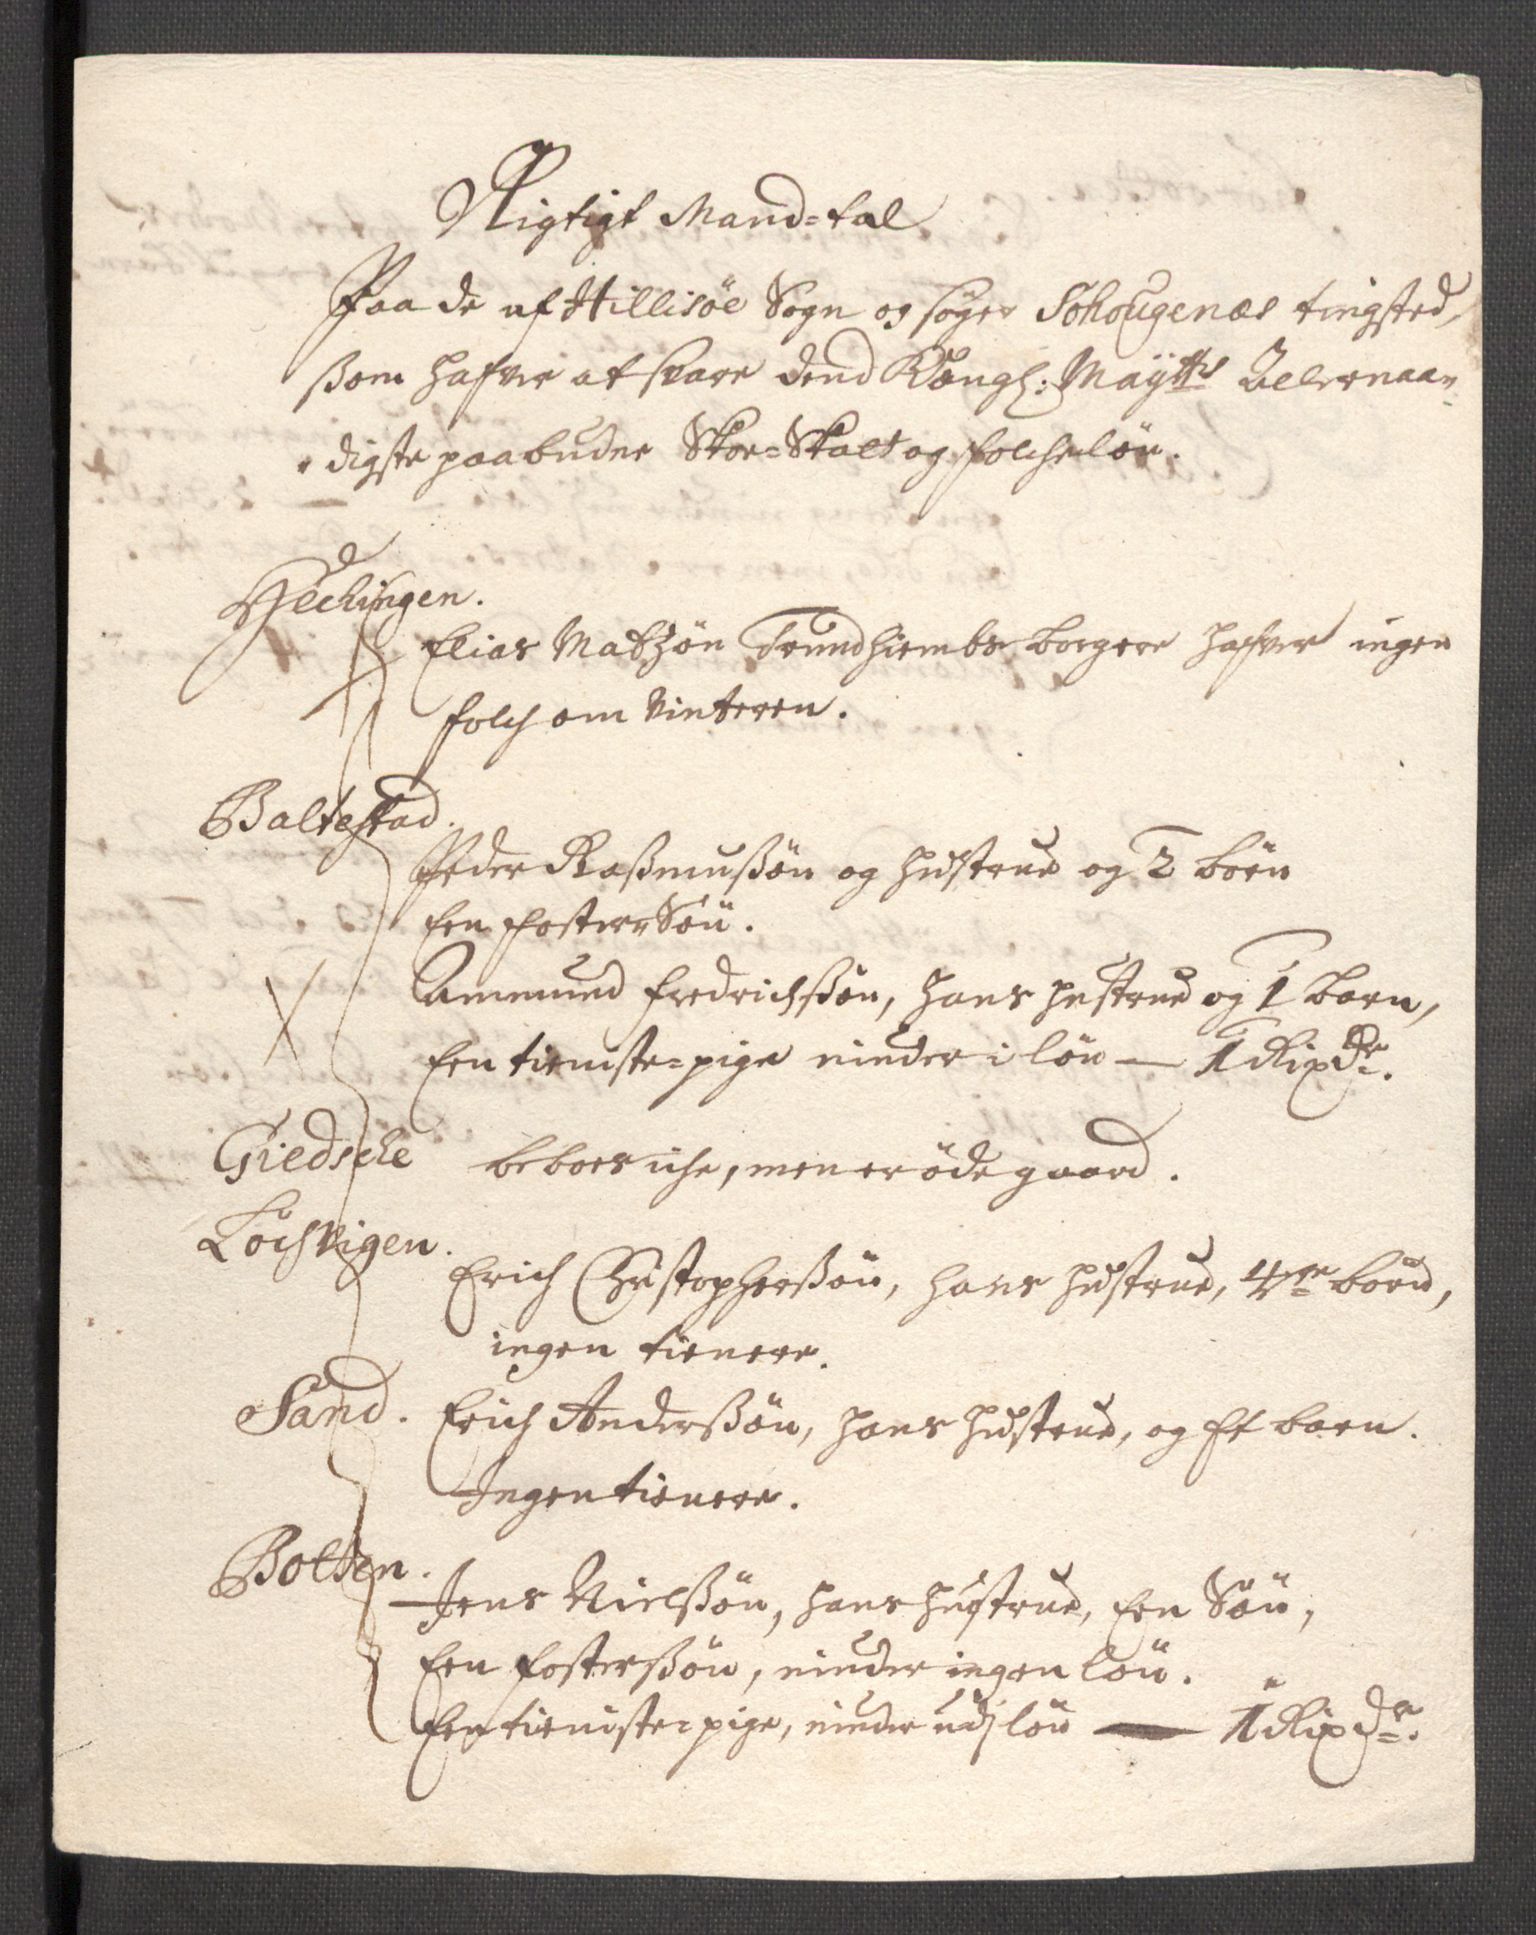 Rigtigt Mand=tal
Paa de af Hillisöe Sogn og söger Sohougenæs tingsted,
ßom hafver at svare dend Kongl: Maÿtts Allernaa=
digste paabudne Skoe=Skatt og folcheløn.
Hechingen.
Elias Matzön Trundhiembs borgere hafver ingen
folch om Vinteren.
Baltestad.
Peder Raßmußön og hustrue og 2 börn
Een foster Sön.
Ammund fredrichßön, hans hustrue og 1 barn,
Een tieniste=pige niuder i lön — 1 Rixdr.
Giedsche beboes iche, men er öde gaard.
Löchvigen.
Erich Christopherßön, hans hustrue, 4re börn,
ingen tienere.
Sand. Erich Anderßön, hans hustrue, og Et barn.
Ingen tienere.
Botten.
Jens Nielßön, hans hustrue, Een Sön,
Een fosterßön, niuder ingen lön.
Een tieniste=pige, niuder udj lön — 1 Rixdr.